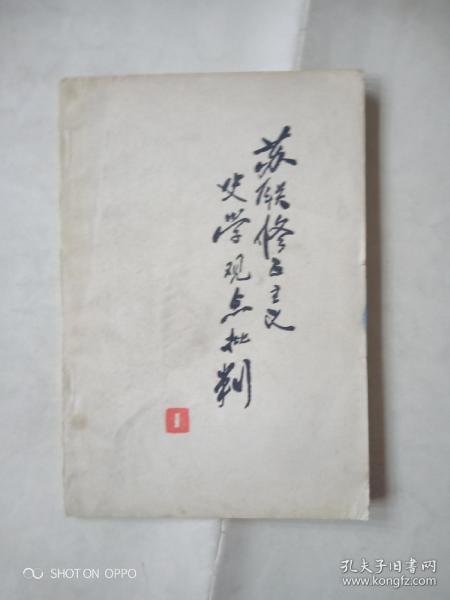 苏联修正主义
史学观点批判
1
SHOT ON OPPO
孔夫子旧书网
www.kongfz.com